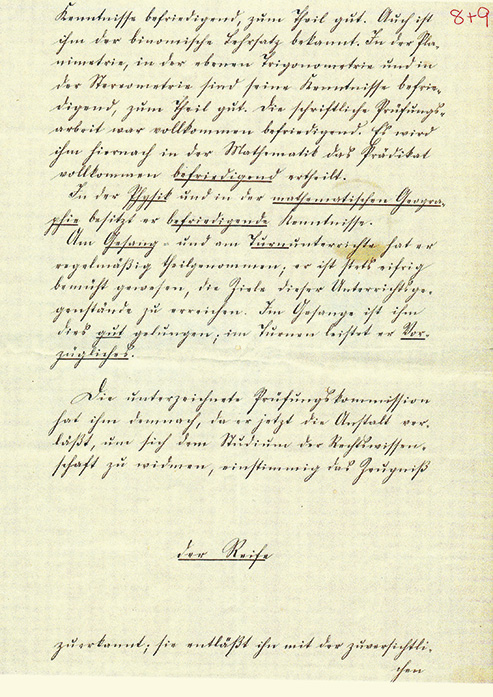 8+9
Kenntnisse befriedigend, zum Theil gut. Auch ist
ihm der binomische Lehrsatz bekannt. In der Pla-
nimetrie, in der ebenen Trigonometrie und in
der Stereometrie sind seine Kenntnisse befrie-
digend, zum Theil gut. Die schriftliche Prüfungs-
arbeit war vollkommen befriedigend. Es wird
ihm hiernach in der Mathematik das Prädikat
vollkommen befriedigend ertheilt.
In der Physik und in der mathematischen Geogra-
phie besitzt er befriedigende Kenntnisse.
Am Gesang- und am Turnunterrichte hat er
regelmäßig theilgenommen; er ist stets eifrig
bemüht gewesen, die Ziele dieser Unterrichtsge-
genstände zu erreichen. Im Gesange ist ihm
dies gut gelungen; im Turnen leistet er Vor-
zügliches.
Die unterzeichnete Prüfungskommission
hat ihm demnach, da er jetzt die Anstalt ver-
läßt, um sich dem Studium der Rechtswissen-
schaft zu widmen, einstimmig das Zeugniß
der Reife
zuerkannt; sie entläßt ihn mit der zuversichtli-
chen